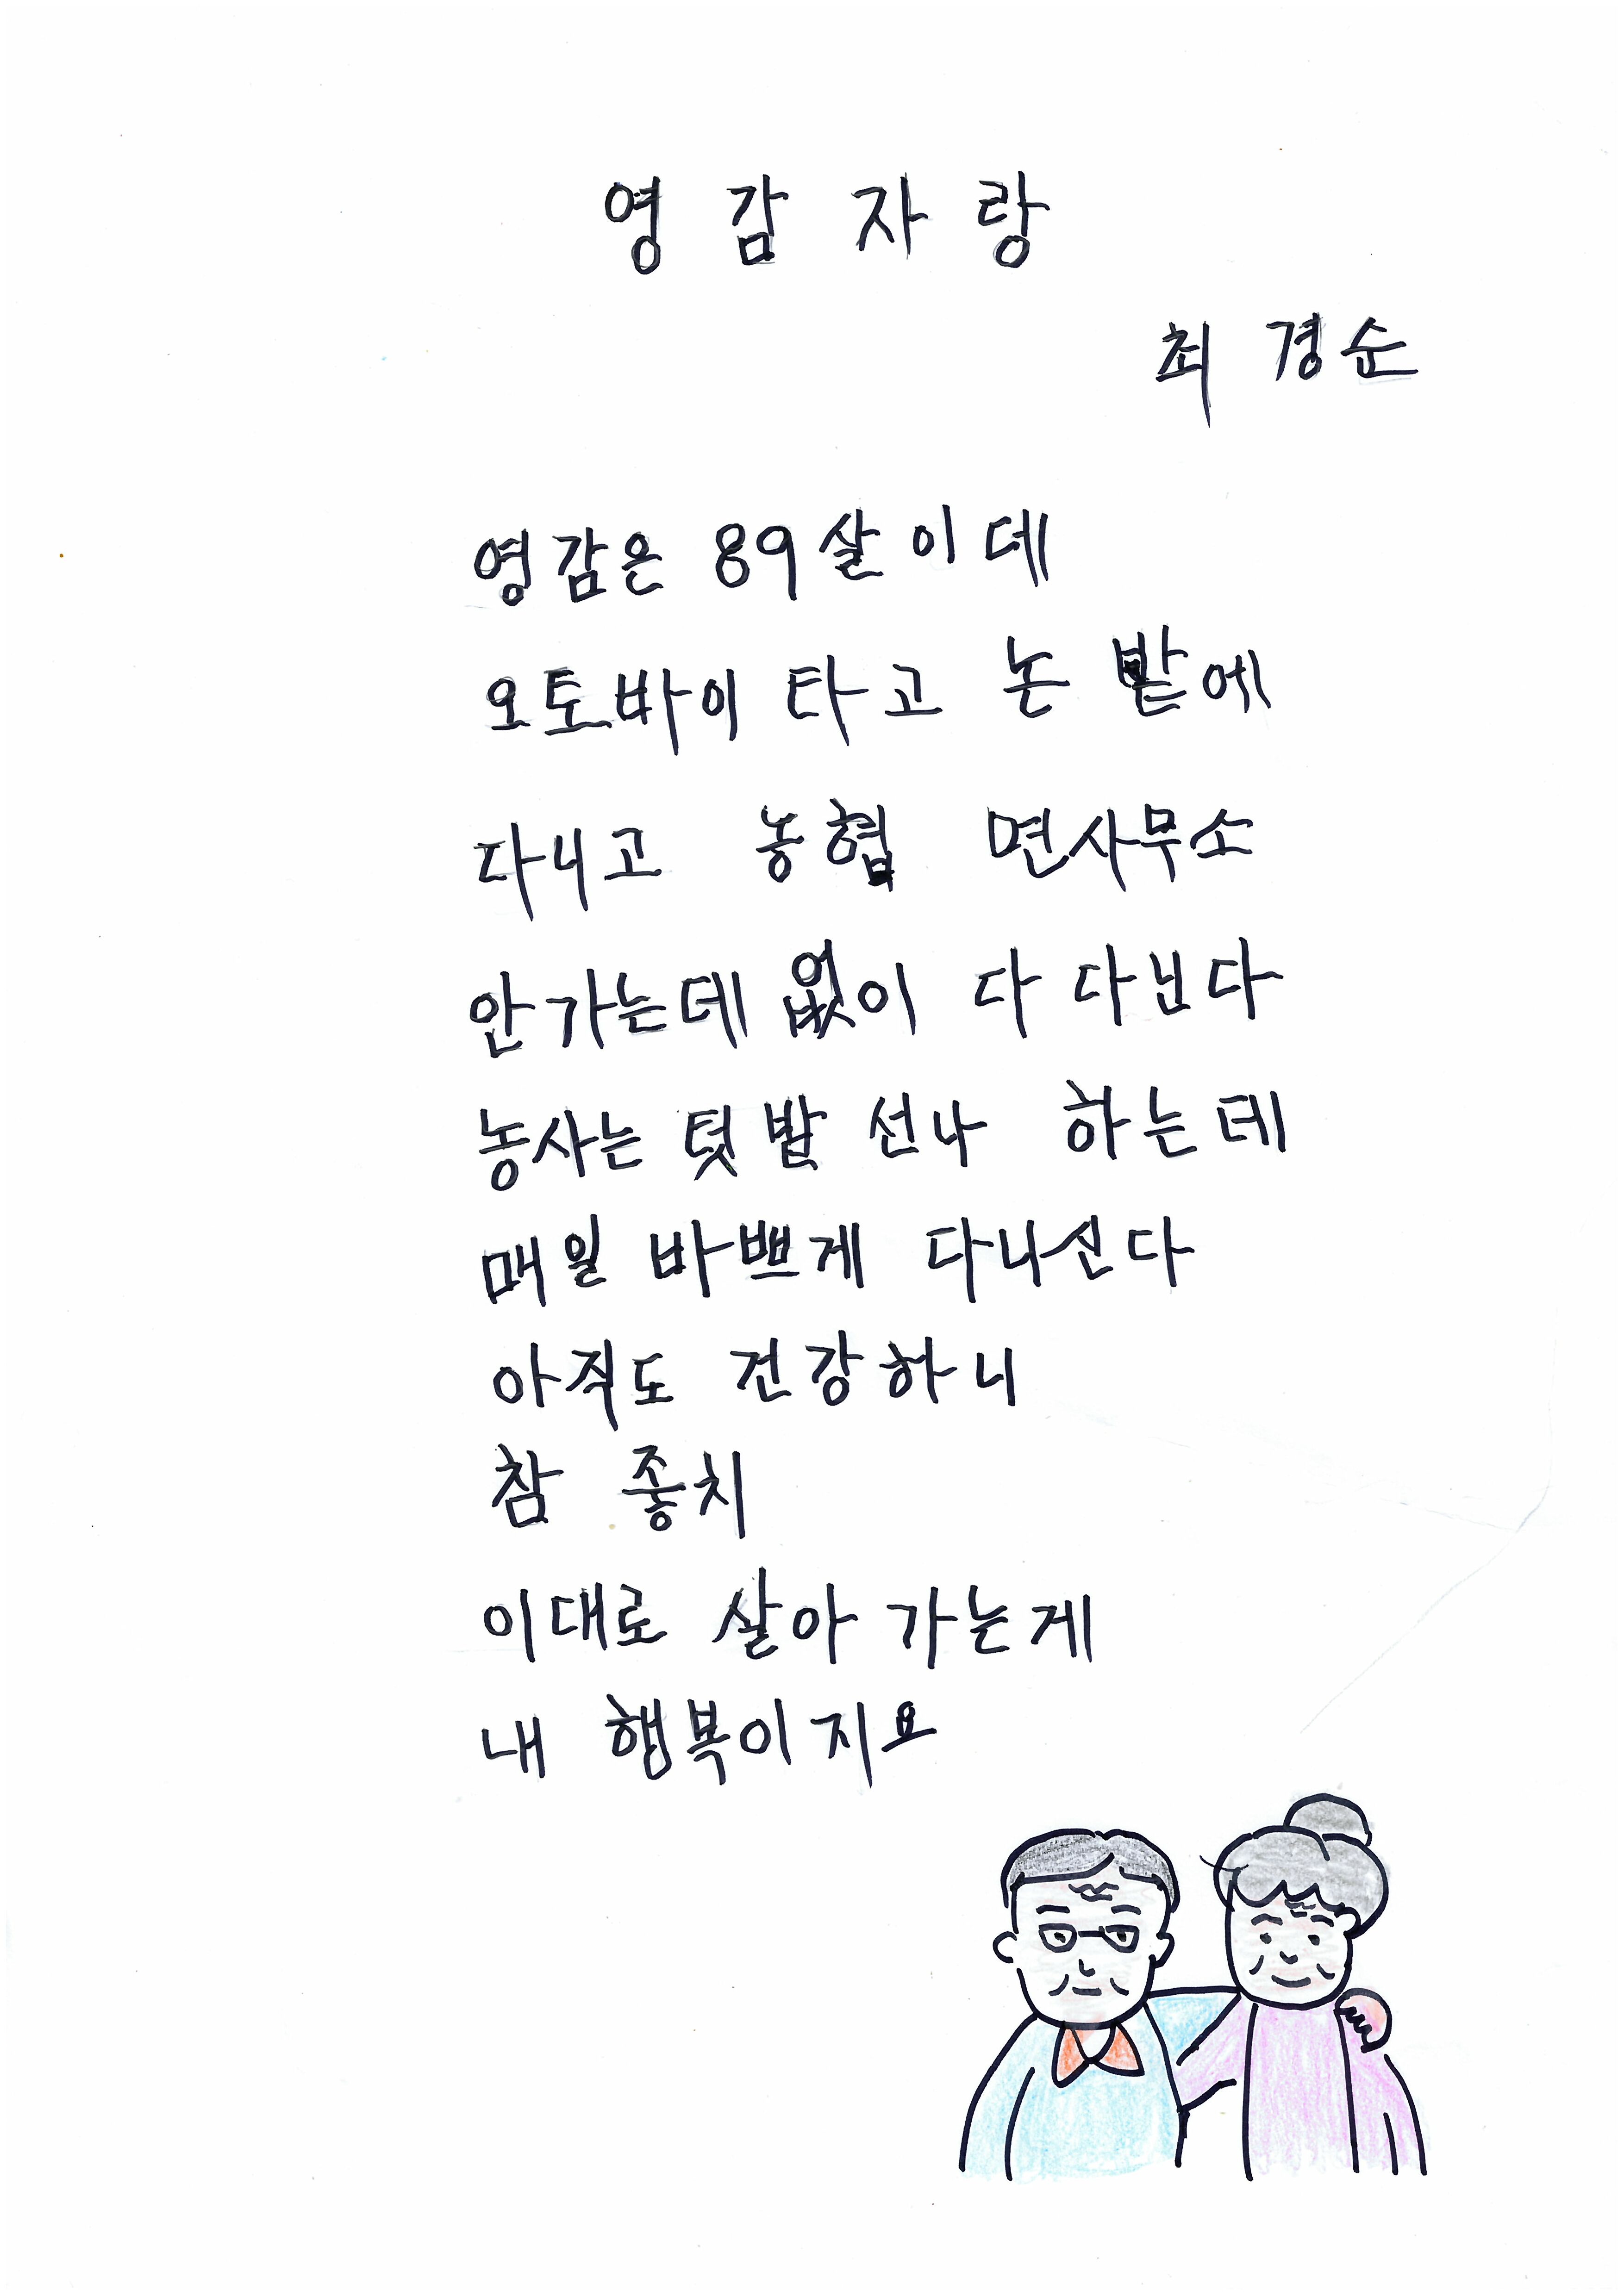 영감자랑
최 경순
영감은 89살이데
오토바이 타고 논 밭에
다니고 농협 면사무소
안가는데 없이 다 다닌다
농사는 텃밭 선나 하는데
매일 바쁘게 다니신다
아직도 건강하니
참 좋치
이대로 살아 가는게
내 행복이지요